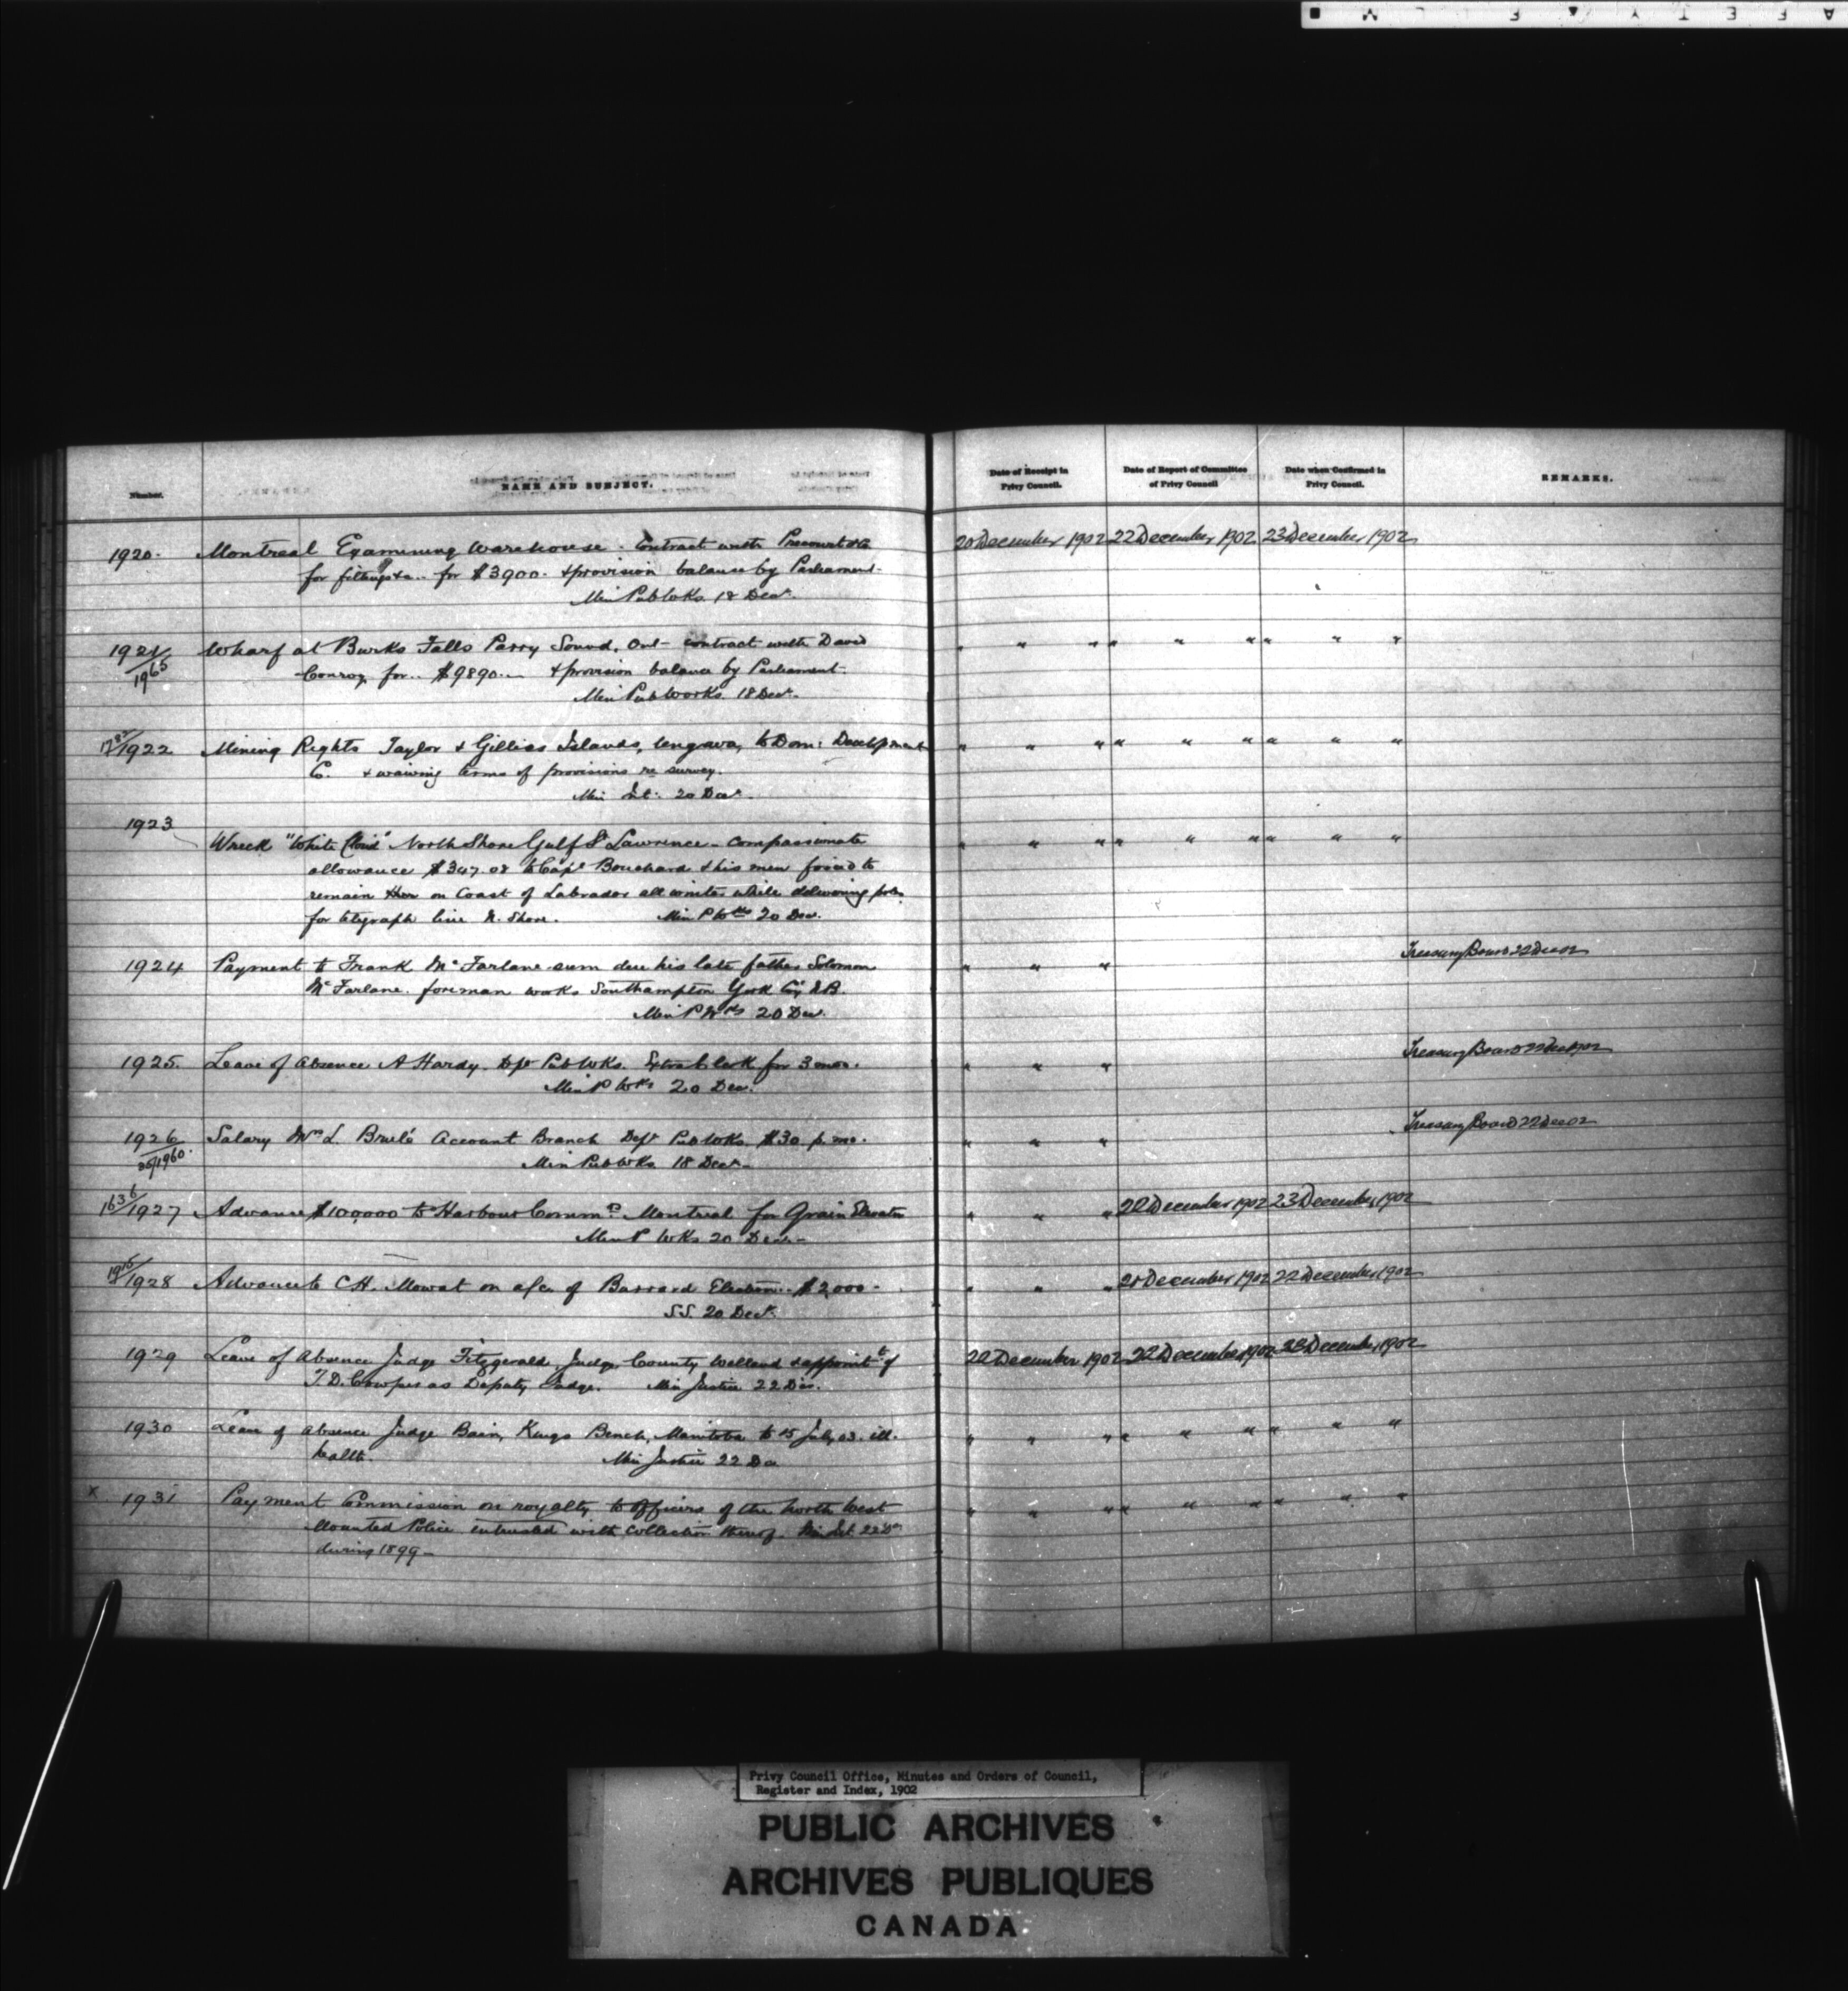 Number.
NAME AND SUBJECT.
Date of Receipt in Privy Council.
Date of Report of Committee of Privy Council
Date when Confirmed in Privy Council.
REMARKS.
1920. Montreal Examining Warehouse. Contract with Precourt & Co 20 December 1902 22 December 1902 23 December 1902
for fittings &c.. for $3900. & provision balance by Parliament.
Min Pub Wks 18 Decr.
1921/1965 Wharf at Burks Falls Parry Sound, Ont - contract with David " " " " " " " " "
Conroy for.. $9890.— & provision balance by Parliament.
Min Pub Works. 18 Decr.
1922 Mining Rights Taylor & Gillies Islands, Ungava, to Dom: Development " " " " " " " " "
Co. & waiving terms of provisions re survey.
Min Int. 20 Decr.
1923
Wreck "White Cloud" North Shore Gulf St Lawrence - Compassionate " " " " " " " " "
allowance $347.08 to Capt Bouchard & his men forced to
remain on Coast of Labrador all winter while delivering poles
for telegraph line N. Shore. Min P Wks 20 Dec.
1924 Payment to Frank McFarlane sum due his late father Solomon " " " Treasury Board 22 Dec 02
McFarlane. foreman works Southampton York Coy N.B.
Min P Wks 20 Dec.
1925. Leave of absence A Hardy. Dept Pub Wks. Extra Clerk for 3 mos. " " " Treasury Board 22 Dec 1902
Min P Wks 20 Dec.
1926 Salary Mrs L. Brulé Account Branch Dept Pub Wks $30 p. mo. " " " Treasury Board 22 Dec 02
Min Pub Wks 18 Decr
1636/1927 Advance $100,000 to Harbour Commrs Montreal for Grain Elevator " " " 22 December 1902 23 December 1902
Min P Wks 20 Decr
1928 Advance to C.H. Mowat on a/c of Burrard Election.. $2,000 - " " " December 1902 22 December 1902
S.S. 20 Decr.
1929 Leave of Absence Judge Fitzgerald, Judge County Welland & appointt of 22 December 1902 22 December 1902 23 December 1902
T.D. Cowper as Deputy Judge. Min Justice 22 Dec.
1930 Leave of absence Judge Bain, Kings Bench, Manitoba to 15 July, 03. ill. " " " " " " " " "
health. Min Justice 22 Dec
x 1931 Payment Commission on royalty to Officers of the North West " " " " " " " " "
Mounted Police intrusted with collection thereof. Min Int. 22 Dec
during 1899 -
Privy Council Office, Minutes and Orders of Council,
Register and Index, 1902
PUBLIC ARCHIVES
ARCHIVES PUBLIQUES
CANADA